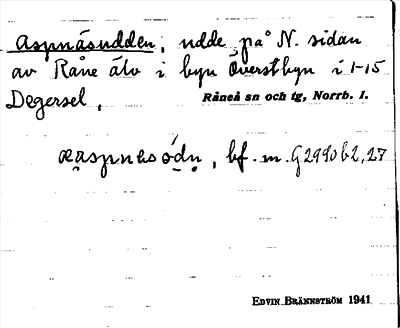 Aspnäsudden, udde på N. sidan
av Råne älv i byn Överstbyn i 1-15
Degersel,
Råneå sn och tg, Norrb. l.
bf. m. G2990b2,27
Edvin Brännström 1941